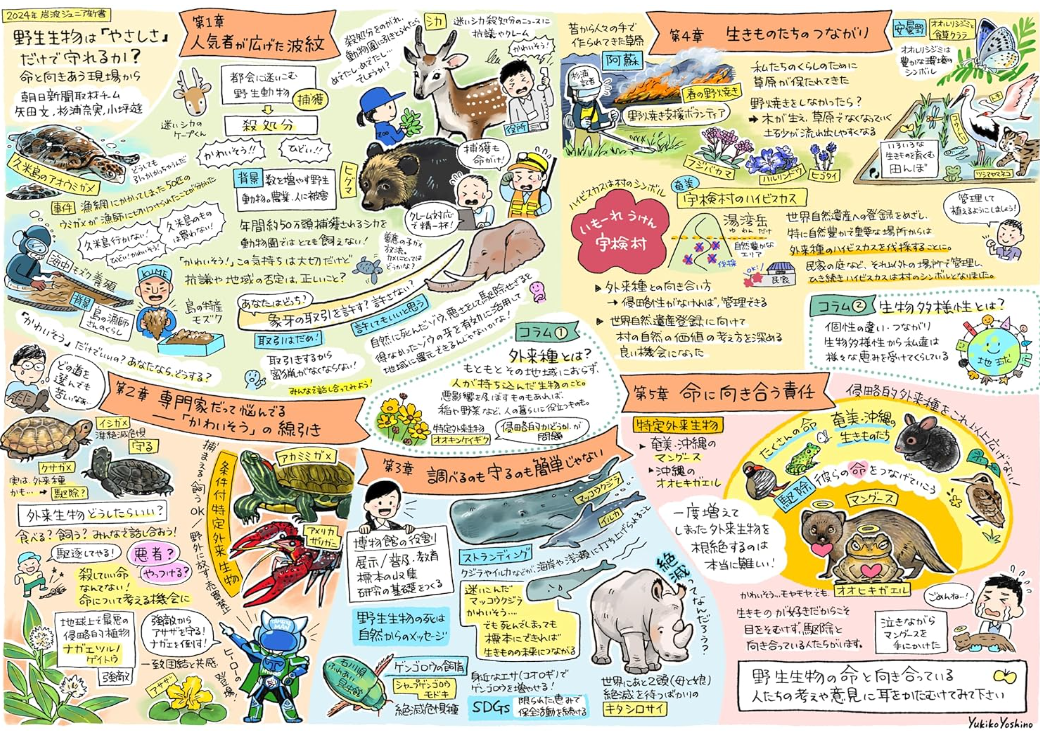 2024年 岩波ジュニア新書
野生生物は「やさしさ」
だけで守れるか？
命と向きあう現場から
朝日新聞取材チーム
矢田文、杉浦奈実、小坪遊
久米島のアオウミガメ
どうしても
事件 漁網にかかってしまった50匹の
ウミガメが漁師に
久米島行かない!
久米島のもの
は買わない!
ひどい!かわいそう!
海中もずく養殖
背景
島の漁師
さんのくらし
KUME
島の特産
モズク
「かわいそう」だけでいい？あなたなら、どうする？
第1章
人気者が広げた波紋
迷いシカの
ケープくん
都会に迷いこむ
野生動物
捕獲
殺処分
かわいそう!!
ひどい!!
背景
数を増やす野生
動物の農業、人に被害
年間約50万頭捕獲されるシカを
動物園ではとても飼えない!
「かわいそう」この気持ちは大切だけど
抗議や地域の否定は、正しいこと？
殺処分をのがれ、
動物園に引きとられたら
めでたし、めでたし…
でしょうか？
シカ
迷いシカ殺処分のニュースに
抗議やクレーム
かわいそう!
役所
ヒグマ
捕獲も
命がけ!
クレーム対応
で精一杯!
あなたはどっち？
象牙の取引を許す？許さない？
取引はだめ!
取引をするから
密猟がなくならない!
許してもいいと思う
自然に死んだゾウ、悪さをし駆除せざるを
得なかったゾウの牙を有効に活用して
地域に還元できるんじゃないかな!
みんなで話し合ってみよう!
第2章 専門家だって悩んでる
「かわいそう」の線引き
どの道を
選んでも
苦いなぁ…
イシガメ
準絶滅危惧
守る
クサガメ
実は、外来種
かも… → 駆除？
外来生物どうしたらいい？
食べる？飼う？みんなで話し合おう!
駆逐してやる!
悪者？
やっつける？
殺していい命
なんてない!
命について考える機会に
捕まえる、飼うOK／野外に放す、売買禁止
条件付特定外来生物
アカミミガメ
アメリカ
ザリガニ
地球上で最悪の
侵略的植物
ナガエツルノ
ゲイトウ
強敵
強敵から
アサザを守る!
ナガエを倒す!
一致団結と共感
ヒーローの登場!
アサザ
コラム①
外来種とは？
もともとその地域におらず、
人が持ち込んだ生物のこと。
悪影響を及ぼすものもあれば、
稲や野菜など、人の暮らしに役立つものも。
特定外来生物
オオキンケイギク
侵略的かどうか、が
問題
第3章 調べるのも守るのも簡単じゃない
博物館の役割
展示／普及、教育
標本の収集
研究の基礎をつくる
マッコウクジラ
イルカ
ストランディング
クジラやイルカなどが、海岸や浅瀬に打ち上げられること
野生生物の死は
自然からのメッセージ
迷いこんだ
マッコウクジラ
かわいそう…
でも死んでしまっても
標本にできれば
生きものの未来につながる
絶滅ってなんだろう？
石川県
ふれあい
昆虫館
ゲンゴロウの飼育
シャープゲンゴロウ
モドキ
絶滅危惧種
身近なエサ（コオロギ）で
ゲンゴロウを増やせる!
SDGs
限られた恵みで
保全活動を続ける
世界にあと2頭（母と娘）
絶滅を待つばかりの
キタシロサイ
第4章 生きものたちのつながり
昔から人々の手で
作られてきた草原
阿蘇
杉浦
記者
春の野焼き
野焼き支援ボランティア
私たちのくらしのために
草原が保たれてきた
野焼きをしなかったら？
→ 木が生え、草原でなくなっていく
土砂が流れ出しやすくなる
フジバカマ
ハルリンドウ
ヒゴタイ
安曇野
オオルリシジミと
食草クララ
オオルリシジミは
豊かな環境の
シンボル
いろいろな
生きものを育くむ
田んぼ
ツシマヤマネコ
奄美
宇検村のハイビスカス
ハイビスカスは村のシンボル
いもーれ うけん
宇検村
湯湾岳
ゆわんだけ
自然豊かな
エリア
伐採
OK!
民家
管理して
植えるようにしましょう!
世界自然遺産への登録をめざし、
特に自然が豊かで重要な場所からは
外来種のハイビスカスを伐採することに。
民家の庭など、それ以外の場所で管理し、
ひき続きハイビスカスは村のシンボルとなりました。
▶ 外来種との向き合い方
→ 侵略性がなければ、管理できる
▶ 世界自然遺産登録に向けて
村の自然の価値の考え方を深める
良い機会になった
コラム② 生物多様性とは？
個性の違い・つながり
生物多様性から私達は
様々な恵みを受けてくらしている
地球
第5章 命に向き合う責任
侵略的外来種をこれ以上広げない!
特定外来生物
▶ 奄美・沖縄の
マングース
▶ 沖縄の
オオヒキガエル
たくさんの命
奄美・沖縄の
生きものたち
駆除
彼らの命をつなげていこう
マングース
オオヒキガエル
一度増えて
しまった外来生物を
根絶するのは
本当に難しい!
かわいそう…モヤモヤ…でも
生きものが好きだからこそ
目をそむけず、駆除と
向き合っている人たちがいます。
ごめんね…!
泣きながら
マングースを
手にかけた
野生生物の命と向き合っている
人たちの考えや意見に耳をかたむけてみて下さい
Yukiko Yoshino